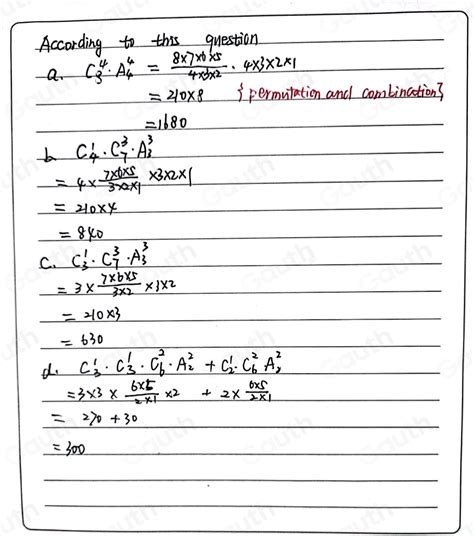 According to this question
a. C₈⁴·A₄⁴ = 8×7×6×5/4×3×2 · 4×3×2×1
= 210×8 {permutation and combination}
=1680
b C₄¹·C₇³·A₃³
= 4× 7×6×5/3×2×1 ×3×2×1
= 210×4
= 840
C. C₃¹·C₇³·A₃³
= 3× 7×6×5/3×2 ×3×2
= 210×3
= 630
d. C₃¹·C₃¹·C₆²·A₂² + C₂¹·C₆² A₂²
=3×3× 6×5/2×1 ×2 + 2× 6×5/2×1
= 270 +30
=300
Gauth